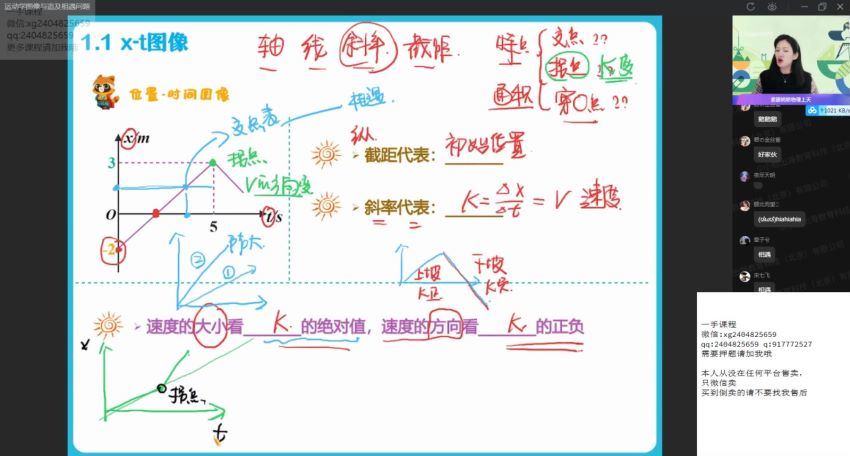 运动学图像与追及相遇问题
一手课程
微信:xg2404825659
qq:2404825659
更多课程请加我哦
1.1 x-t图像
轴 线 斜率 截距
特点
交点??
拐点 K/速度
面积
穿0点??
位置-时间图像
交点表
相遇
x/m
3
拐点
V方向变
O
5
t/s
-2
纵
截距代表：初始位置
斜率代表：K=Δx/Δt=V 速度
②
①
上坡
K正
下坡
K负
速度的大小看 K 的绝对值，速度的方向看 K 的正负
x
拐点
t
1021 KB/s
好家伙
(ง'ω')วhiahiahia
相遇
相遇
一手课程
微信:xg2404825659
qq:2404825659 q:917772527
需要押题请加我哦
本人从没在任何平台售卖，
只微信卖
买到倒卖的请不要找我售后